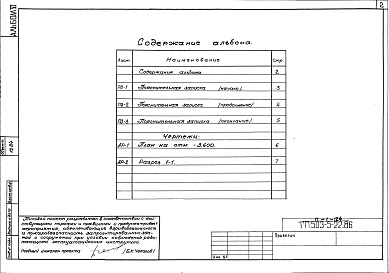 АЛЬБОМ II
2
Содержание альбома.
Лист Наименование Стр.
Содержание альбома 2
ПЗ-1 Пояснительная записка (начало) 3
ПЗ-2 Пояснительная записка (продолжение) 4
ПЗ-3 Пояснительная записка (окончание) 5
Чертежи:
АР-1 План на отм. -3.600. 6
АР-2 Разрез 1-1. 7
Типовой проект разработан в соответствии с дей-
ствующими нормами и правилами и предусматривает
мероприятия, обеспечивающие взрывобезопасность
и пожаробезопасность
при условии соблюдения
Главный инженер проекта
ТП503-5-22.86
Привязан
Инв. №